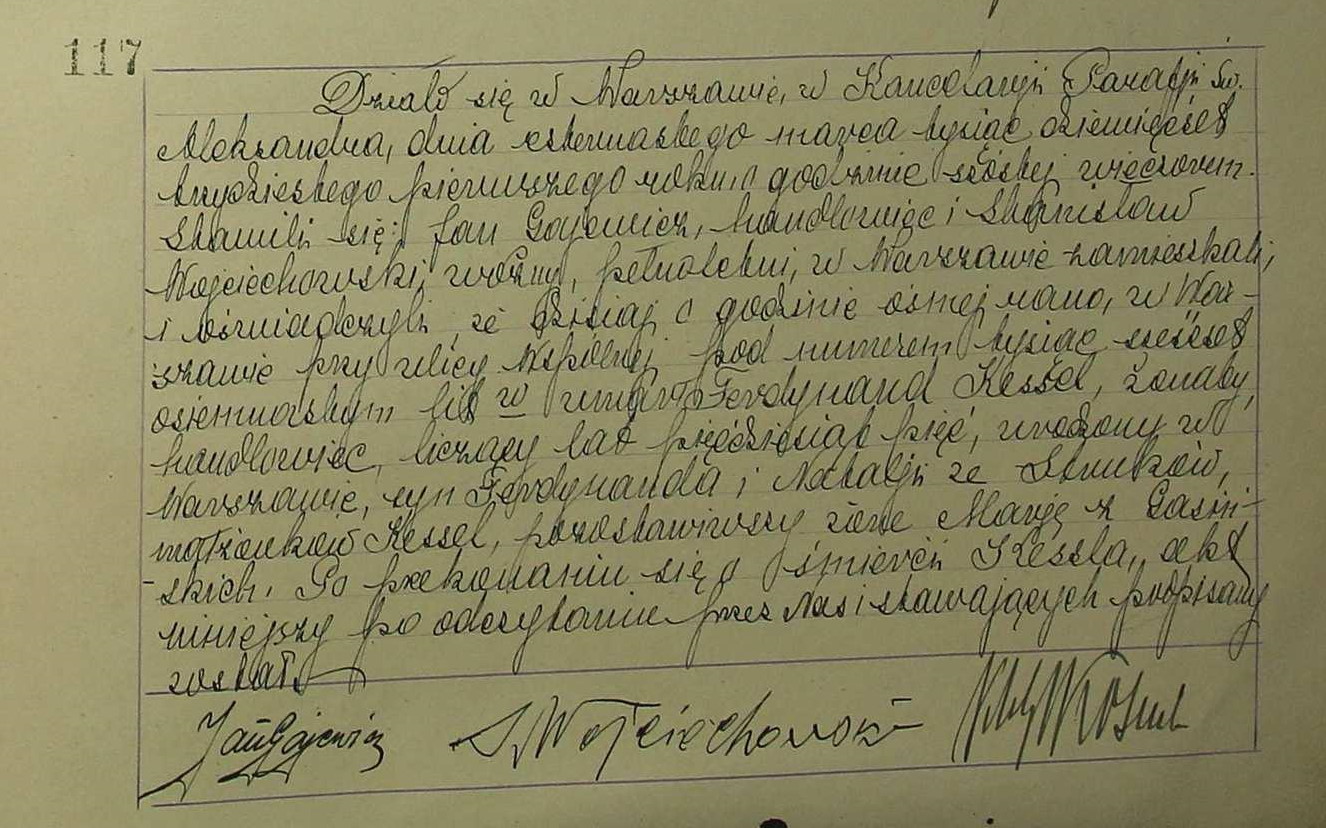 117
Działo się w Warszawie, w Kancelarji Parafji Św.
Aleksandra, dnia czternastego marca tysiąc dziewięćset
trzydziestego pierwszego roku o godzinie szóstej wieczorem.
Stawili się: Jan Gajewicz, handlowiec i Stanisław
Wojciechowski, woźny, pełnoletni, w Warszawie zamieszkali,
i oświadczyli, że dzisiaj o godzinie ósmej rano, w War-
szawie przy ulicy Wspólnej pod numerem tysiąc sześćset
osiemnastym lit w umarł Ferdynand Kessel, żonaty,
handlowiec, liczący lat pięćdziesiąt pięć, urodzony w
Warszawie, syn Ferdynanda i Natalji ze Strutków,
małżonków Kessel, pozostawiwszy żonę Marję z Gasiń-
-skich. Po przekonaniu się o śmierci Kessla, akt
niniejszy po odczytaniu przez Nas i stawających podpisany
został.
Jan Gajewicz S. Wojciechowski